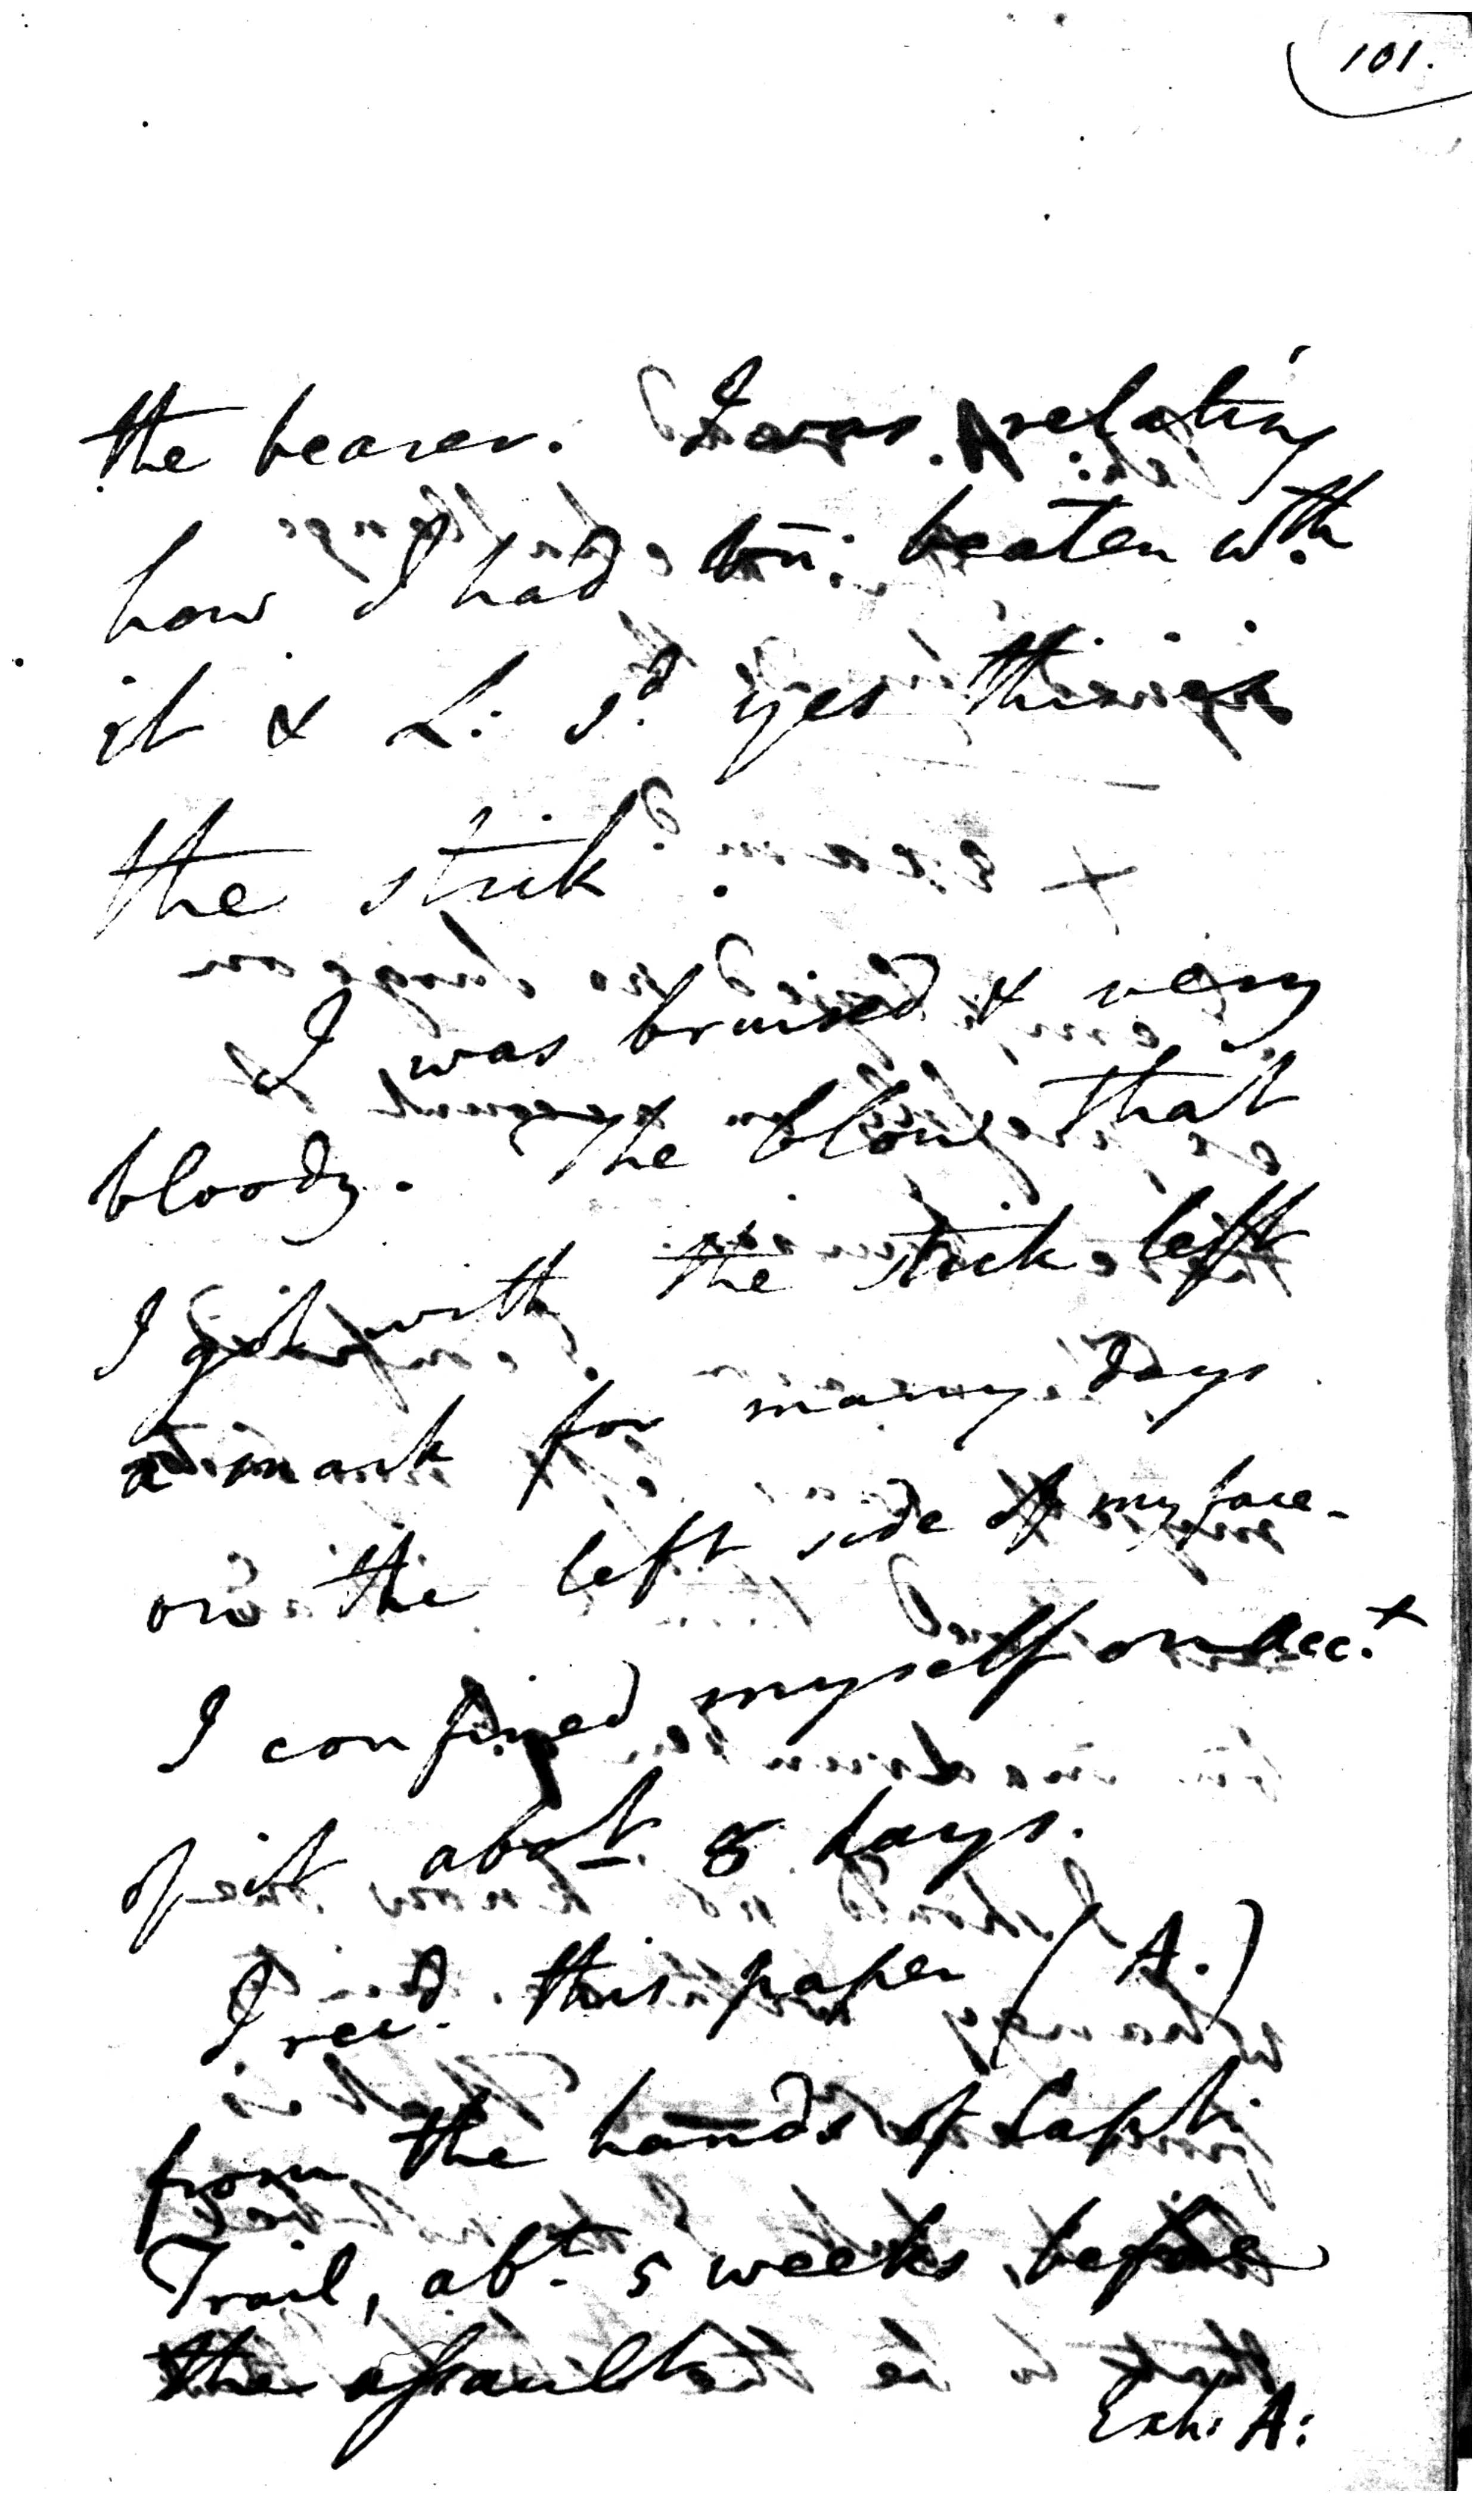 101.
the bearer. I was relating
how I had bn̄: beaten wth
it & L: sd yes this is
the stick.
I was bruised & very
bloody. The blow that
I got with the stick left
a mark for many days
on the left side of my face -
I confined myself on acct
of it about 8 days.
I recd this paper (A.)
from the hands of Capt.
Trail, abt 5 weeks before
the assault
Exh: A: